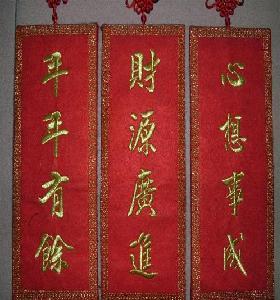 年年有餘
財源廣進
心想事成